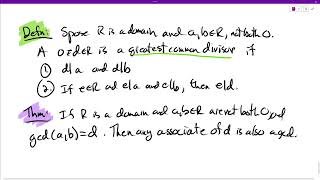 Defn: Spose R is a domain and a,b∈R, not both 0.
A 0≠d∈R is a greatest common divisor if
① d|a and d|b
② If e∈R ad e|a and e|b, then e|d.
Thm: If R is a domain and a,b∈R are not both 0, and
gcd(a,b)=d. Then any associate of d is also a gcd.